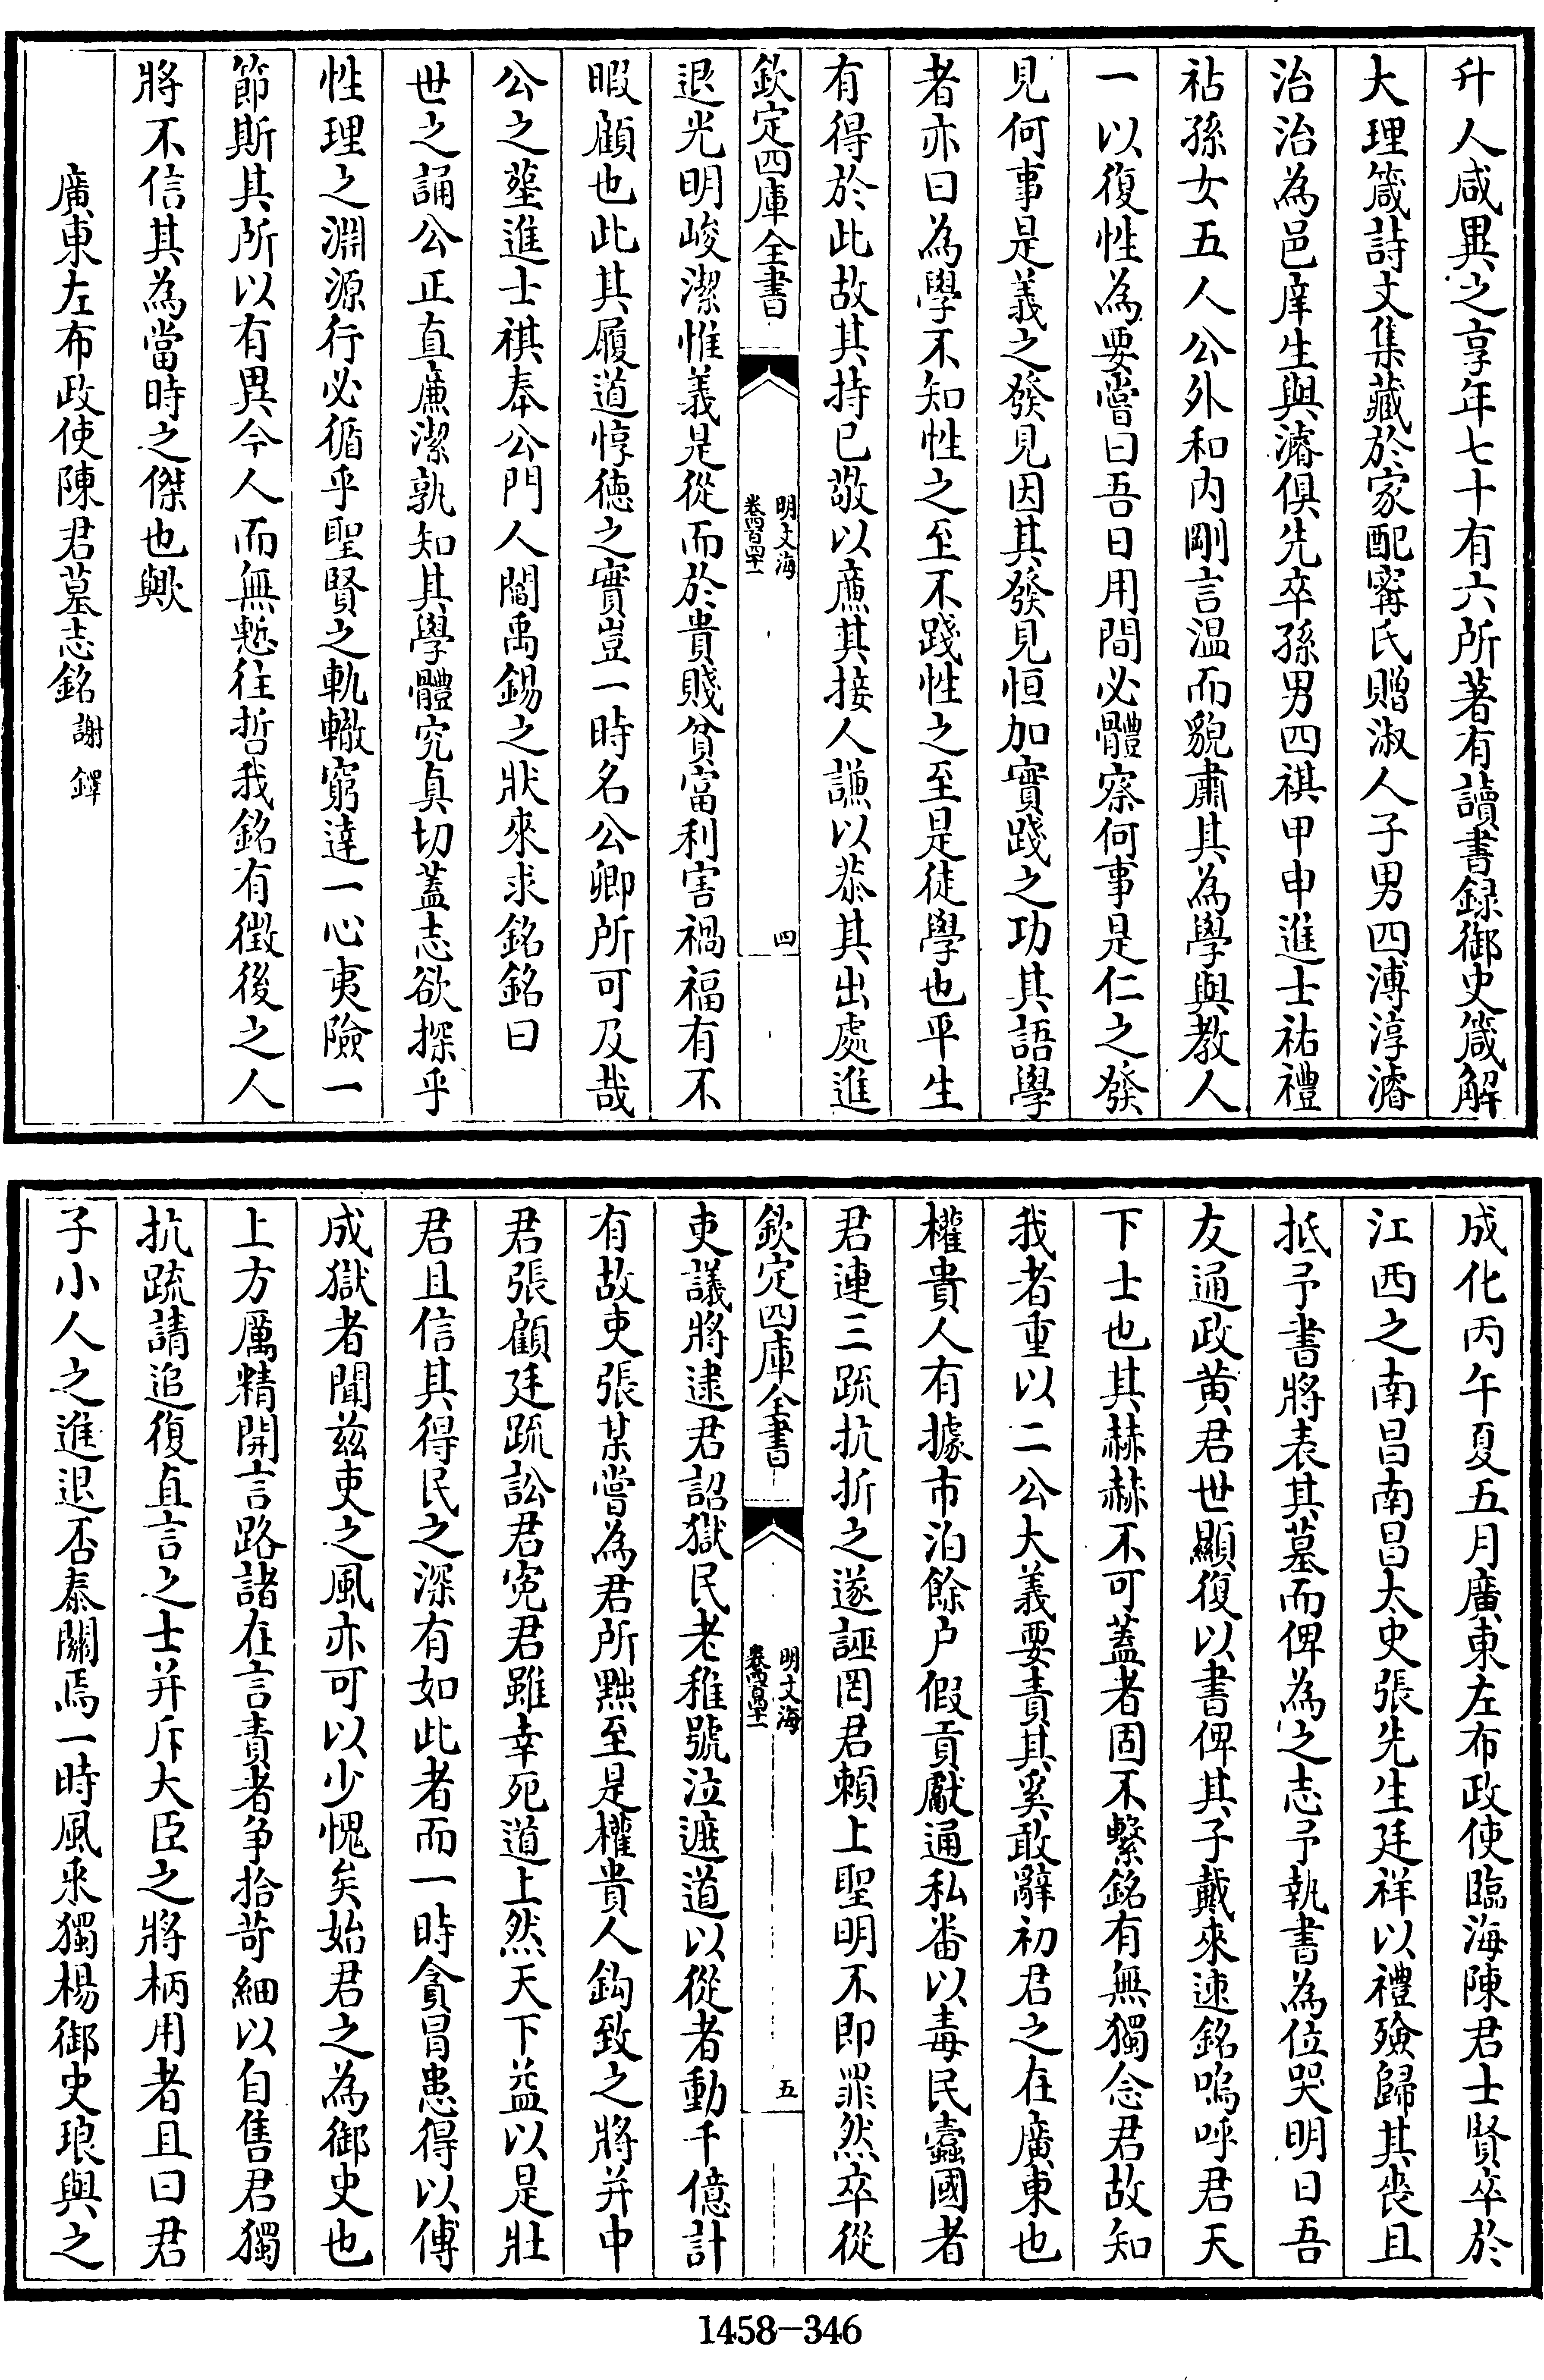 升人咸異之享年七十有六所著有讀書録御史箴解
大理箴詩文集藏於家配甯氏贈淑人子男四溥淳濬
治治為邑庠生與濬俱先卒孫男四祺甲申進士祐禮
祜孫女五人公外和内剛言温而貌肅其為學與教人
一以復性為要嘗曰吾日用間必體察何事是仁之發
見何事是義之發見因其發見恒加實踐之功其語學
者亦曰為學不知性之至不踐性之至是徒學也平生
有得於此故其持已敬以廉其接人謙以恭其出處進
欽定四庫全書
明文海
卷四百四十一
四
退光明峻潔惟義是從而於貴賤貧富利害禍福有不
暇顧也此其履道惇徳之實豈一時名公卿所可及哉
公之塟進士祺奉公門人閻禹錫之狀來求銘銘曰
世之誦公正直廉潔孰知其學體究真切蓋志欲探乎
性理之淵源行必循乎聖賢之軌轍窮逹一心夷險一
節斯其所以有異今人而無慙往哲我銘有徴後之人
將不信其為當時之傑也歟
廣東左布政使陳君墓志銘 謝鐸
成化丙午夏五月廣東左布政使臨海陳君士賢卒於
江西之南昌南昌太史張先生廷祥以禮殮歸其喪且
抵予書將表其墓而俾為之志予執書為位哭明日吾
友通政黄君世顯復以書俾其子戴來速銘嗚呼君天
下士也其赫赫不可蓋者固不繫銘有無獨念君故知
我者重以二公大義要責其奚敢辭初君之在廣東也
權貴人有據市泊餘户假貢獻通私番以毒民蠧國者
君連三疏抗折之遂誣罔君頼上聖明不即罪然卒從
欽定四庫全書
明文海
卷四百四十一
五
吏議將逮君詔獄民老稚號泣遮道以從者動千億計
有故吏張某嘗為君所黜至是權貴人鈎致之將并中
君張顧廷疏訟君寃君雖幸死道上然天下益以是壯
君且信其得民之深有如此者而一時貪冒患得以傅
成獄者聞兹吏之風亦可以少愧矣始君之為御史也
上方厲精開言路諸在言責者争拾苛細以自售君獨
抗疏請追復直言之士并斥大臣之將柄用者且曰君
子小人之進退否泰關焉一時風采獨楊御史琅與之
1458-346